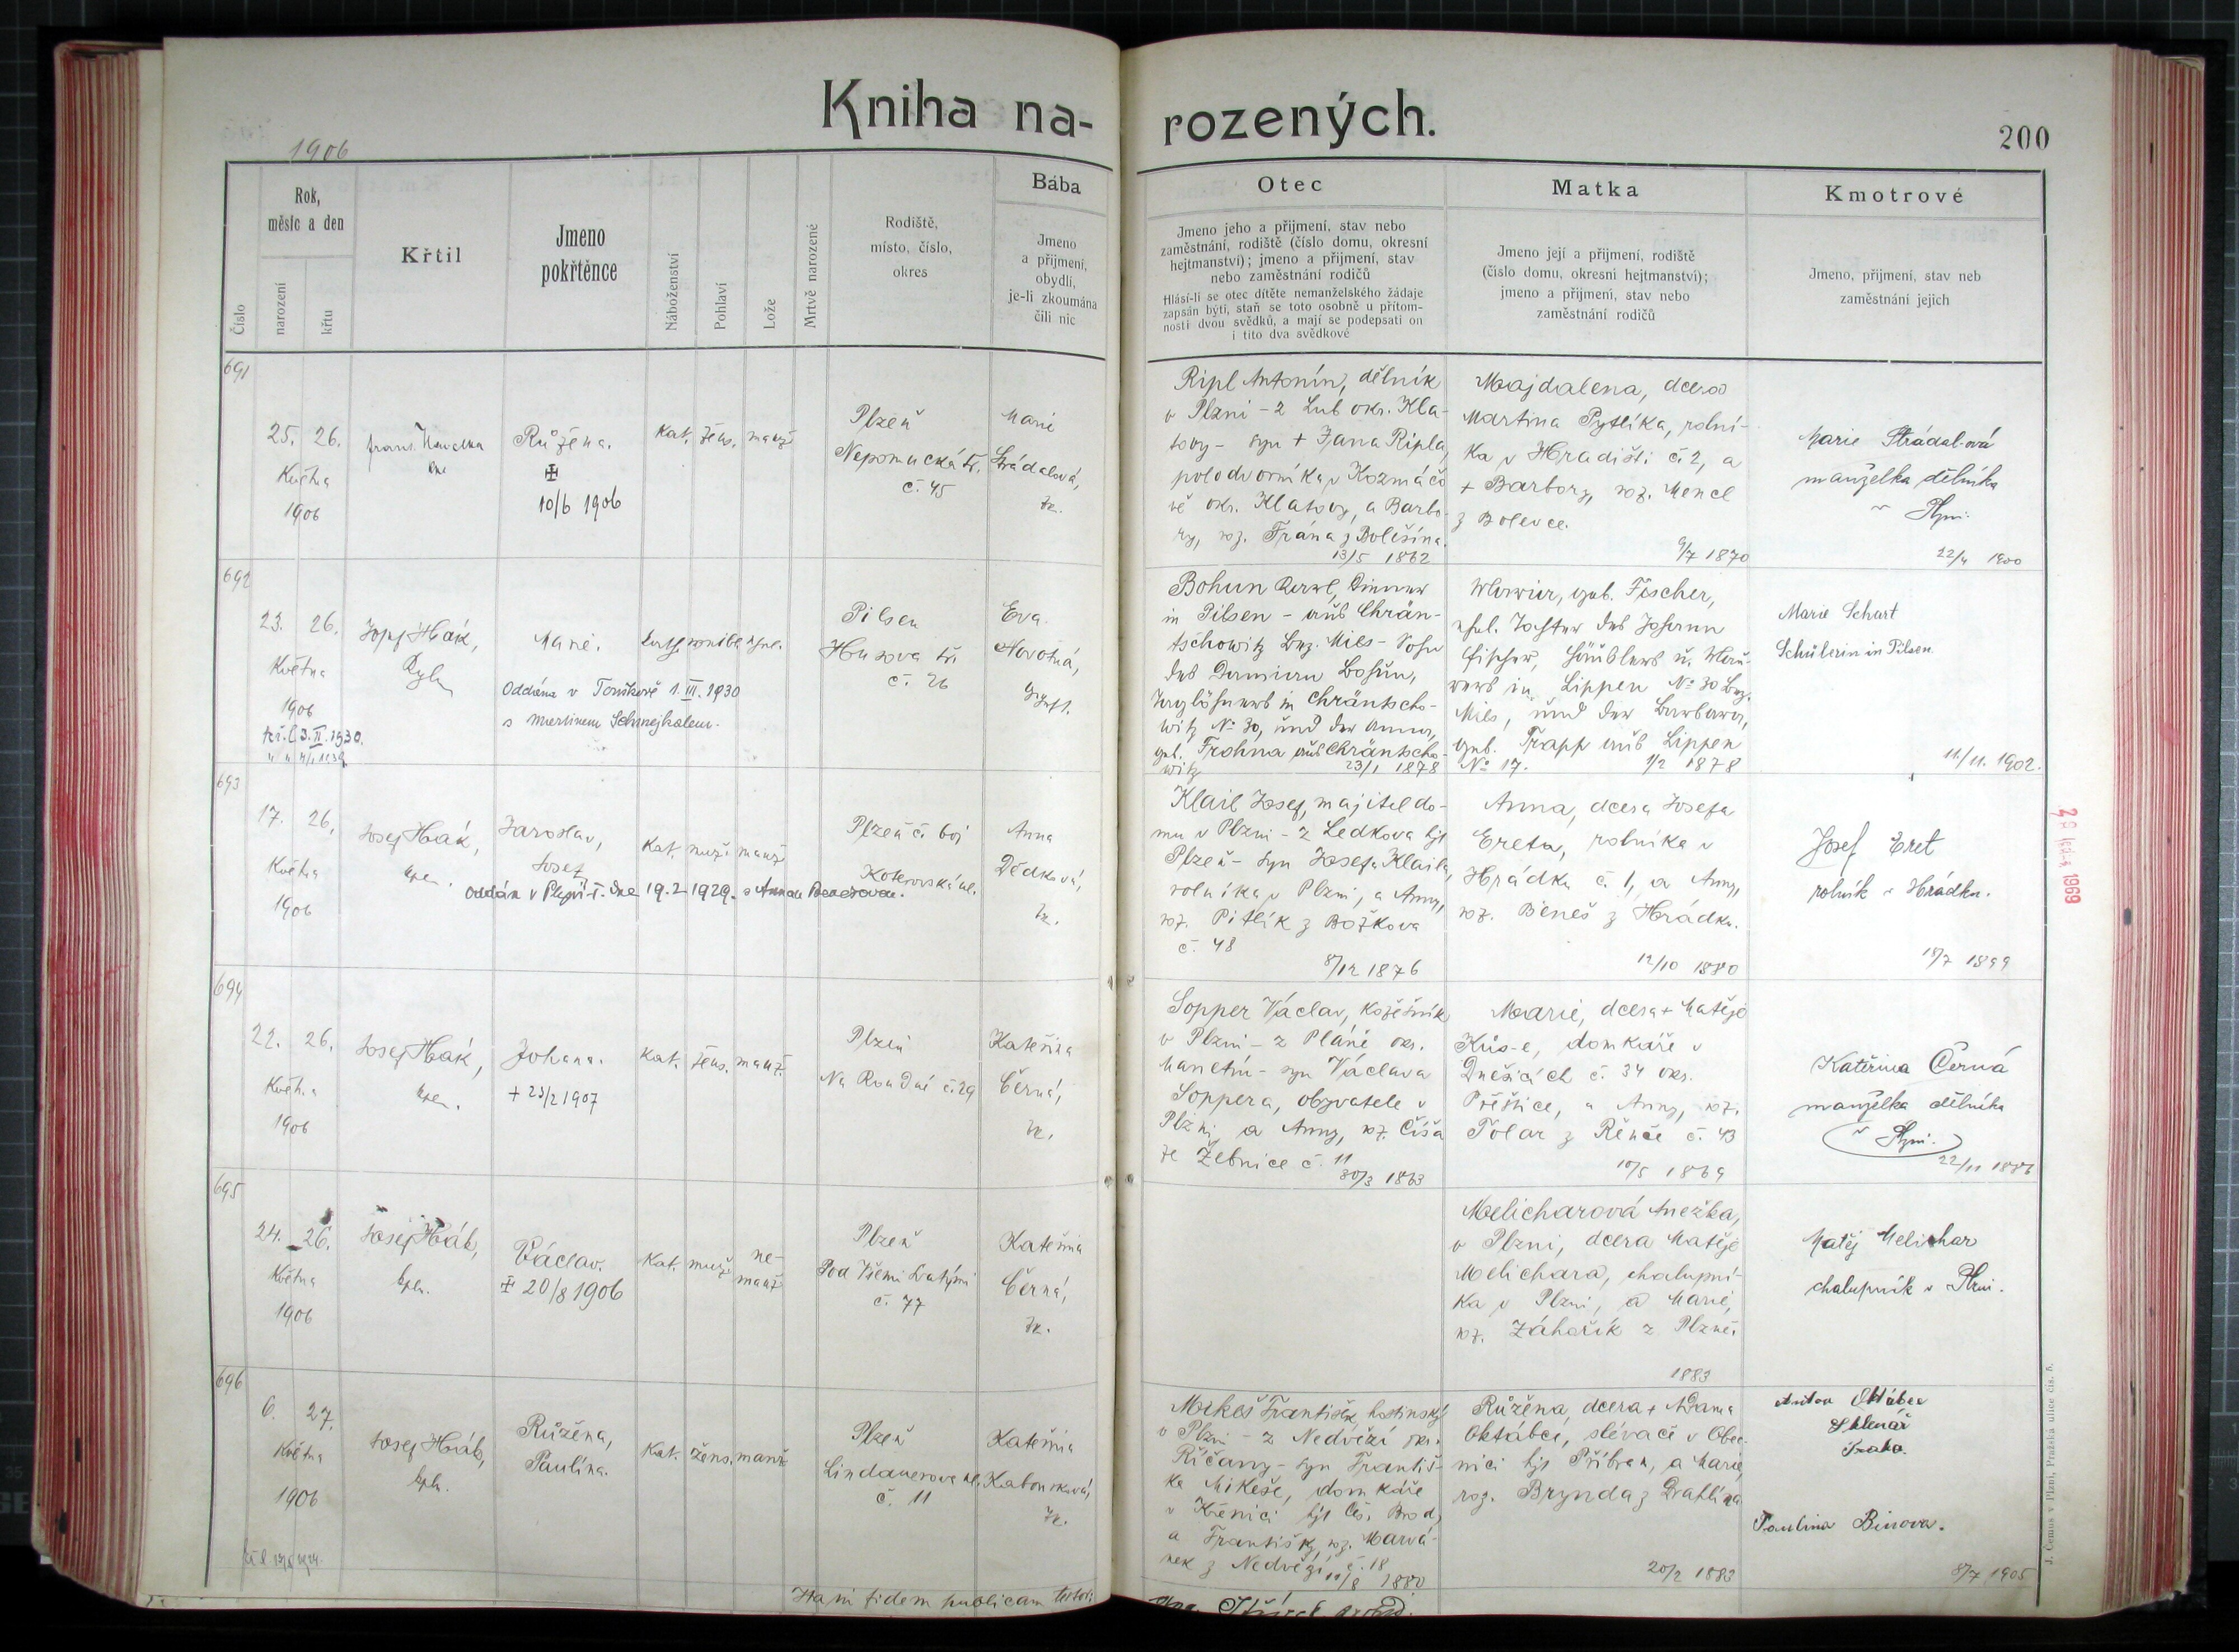 Kniha na-
rozených.
200
1906
Číslo
Rok,
měsíc a den
narození
křtu
Křtil
Jmeno
pokřtěnce
Náboženství
Pohlaví
Lože
Mrtvě narozené
Rodiště,
místo, číslo,
okres
Bába
Jmeno
a přijmení,
obydlí,
je-li zkoumána
čili nic
Otec
Jmeno jeho a přijmení, stav nebo
zaměstnání, rodiště (číslo domu, okresní
hejtmanství); jmeno a přijmení, stav
nebo zaměstnání rodičů
Hlásí-li se otec dítěte nemanželského žádaje
zapsán býti, staň se toto osobně u přítom-
nosti dvou svědků, a mají se podepsati on
i tito dva svědkové
Matka
Jmeno její a přijmení, rodiště
(číslo domu, okresní hejtmanství);
jmeno a přijmení, stav nebo
zaměstnání rodičů
Kmotrové
Jmeno, přijmení, stav neb
zaměstnání jejich
691
25. 26.
Května
1906
Růžena.
10/6 1906
Kat. žens. manž
Plzeň
Nepomucká tř.
č. 45
Marie
Ripl Antonín, dělník
v Plzni - z Lub okr. Kla-
tovy - syn + Jana Ripla,
polodvorníka v
okr. Klatovy, a Barbo-
ry, roz. Trána z Bolešína.
13/5 1862
Majdalena, dcera
Martina Pytlíka, rolní-
ka v Hradišti č. 2, a
+ Barbory, roz. Mencl
z Bolevce.
9/7 1870
Marie Strádalová
manželka dělníka
v Plzni.
22/4 1900
692
23. 26.
Května
1906
kř. l. 3. II. 1930.
Josef Hák,
Marie.
Oddána v Touškově 1. III. 1930
s Martinem Schmejkalem.
Pilsen
Husova tř.
č. 26
Eva
Novotná,
Bohun Karl, Diener
in Pilsen - aus Chrän-
tschowitz Bez. Mies - Sohn
des Damian Bohun,
Taglöhners in Chräntscho-
witz No 30, und der Anna,
geb. Frohna aus Chräntscho-
witz
23/1 1878
Maria, geb. Fischer,
ehel. Tochter des Johann
Fischer, Häuslers u. Mau-
rers in Lippen No 30 Bez.
Mies, und der Barbara,
geb. Trapp aus Lippen
No 17.
1/2 1878
Marie Schart
Schülerin in Pilsen.
11/11. 1902.
693
17. 26.
Května
1906
Josef Hák,
Jaroslav,
Josef
Oddán v Plzni-I. dne 19.2.1929. s Annou Benešovou.
Kat. muž. manž
Plzeň č.
Koterovská ul.
Anna
Dědková,
Klail Josef, majitel do-
mu v Plzni - z Ledkova hjt
Plzeň - syn Josefa Klaila,
rolníka v Plzni, a Anny,
roz. Pitlík z Božkova
č. 48
8/12 1876
Anna, dcera Josefa
Ereta, rolníka v
Hrádku č. 1, a Anny,
roz. Beneš z Hrádku.
12/10 1880
Josef Eret
rolník v Hrádku.
18/7 1899
694
22. 26.
Května
1906
Josef Hák,
Johana.
+ 23/2 1907
Kat. žens. manž.
Plzeň
Na Roudné č. 29
Kateřina
Černá,
Sopper Václav, koželuh
v Plzni - z Pláně okr.
Manetín - syn Václava
Soppera, obyvatele v
Plzni, a Anny, roz. Číža
ze Žebnice č. 11
30/3 1863
Marie, dcera + Matěje
Kůs-e, domkáře v
Dnešicích č. 34 okr.
Přeštice, a Anny, roz.
Tolar z Řenče č. 43
10/5 1869
Kateřina Černá
manželka dělníka
v Plzni.
22/11 1886
695
24. 26.
Května
1906
Josef Hák,
Václav.
20/8 1906
Kat. muž. ne-
manž
Plzeň
Pod Všemi Svatými
č. 77
Kateřina
Černá,
Melicharová Anežka,
v Plzni, dcera Matěje
Melichara, chalupní-
ka v Plzni, a Marie,
roz. Záhořík z Plzně.
1883
Matěj Melichar
chalupník v Plzni.
696
6. 27.
Května
1906
Josef Hák,
Růžena,
Paulína.
Kat. žens. manž
Plzeň
Lindauerova ul.
č. 11
Kateřina
Mikeš František, hostinský
v Plzni - z Nedvězí okr.
Říčany - syn Františ-
ka Mikeše, domkáře
v Křenici hjt Čes. Brod,
a Františky, roz. Marvá-
nek z Nedvězí č. 18
11/8 1880
Růžena, dcera + Adama
Oktábce, slévače v Obec-
nici hjt Příbram, a Marie,
roz. Brynda z Drahlína
20/2 1883
Anton Oktábec
Sklenář
Praha.
Paulina Binova.
8/7 1905
Ita in fidem publicam testor:
29 1969
J. Čemus v Plzni, Pražská ulice čís. 5.